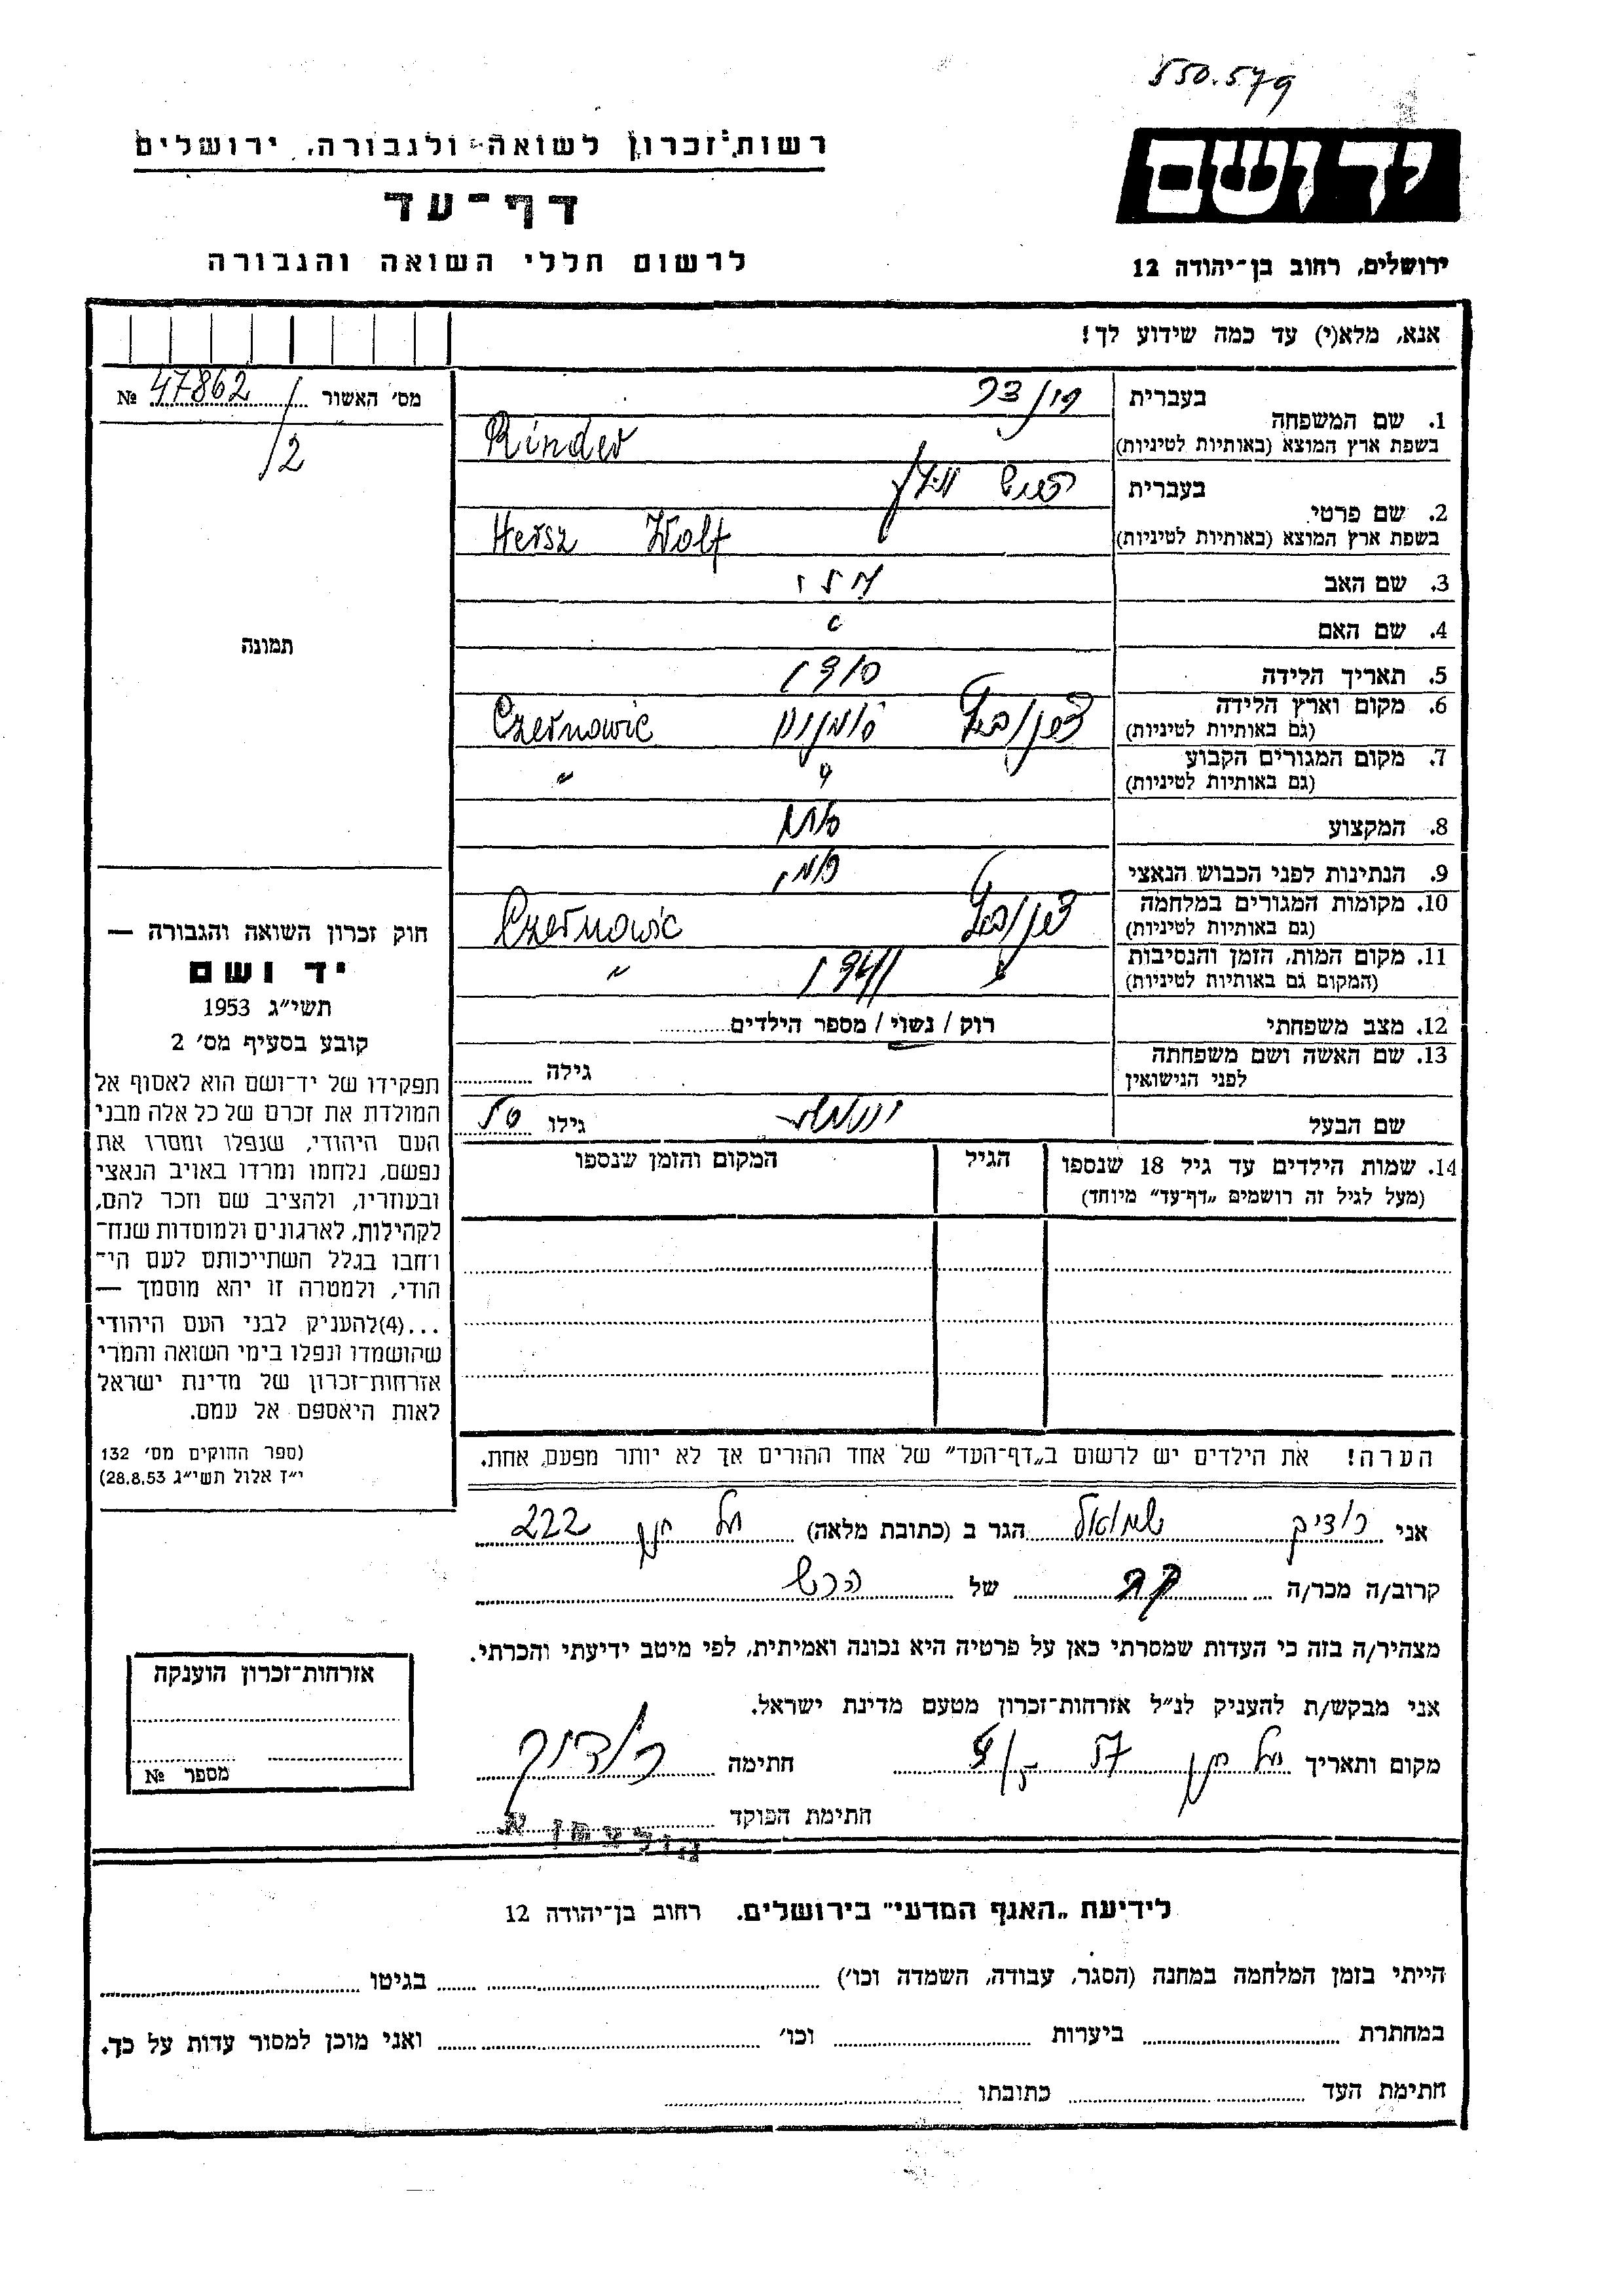 550.579
יד ושם
ירושלים, רחוב בן־יהודה 12
רשות זכרון לשואה ולגבורה, ירושלים
דף־עד
לרשום חללי השואה והגבורה
אנא, מלא(י) עד כמה שידוע לך!
מס׳ האשור № 47862
/2
תמונה
1. שם המשפחה
בעברית
בשפת ארץ המוצא (באותיות לטיניות) Rinder
2. שם פרטי
בעברית הירש וולף
בשפת ארץ המוצא (באותיות לטיניות) Hersz Wolf
3. שם האב
4. שם האם
5. תאריך הלידה
6. מקום וארץ הלידה
(גם באותיות לטיניות) צרנוביץ רומניה Czernowic
7. מקום המגורים הקבוע
(גם באותיות לטיניות) " "
8. המקצוע סוחר
9. הנתינות לפני הכבוש הנאצי רומני
10. מקומות המגורים במלחמה
(גם באותיות לטיניות) צרנוביץ Czernowic
11. מקום המות, הזמן והנסיבות
(המקום גם באותיות לטיניות) " 1941 "
12. מצב משפחתי רוק / נשוי / מספר הילדים
13. שם האשה ושם משפחתה
לפני הנישואין
גילה
שם הבעל
גילו
14. שמות הילדים עד גיל 18 שנספו
(מעל לגיל זה רושמים „דף־עד” מיוחד)
הגיל
המקום והזמן שנספו
הערה! את הילדים יש לרשום ב„דף־העד” של אחד ההורים אך לא יותר מפעם, אחת.
חוק זכרון השואה והגבורה —
יד ושם
תשי״ג 1953
קובע בסעיף מס׳ 2
תפקידו של יד־ושם הוא לאסוף אל
המולדת את זכרם של כל אלה מבני
העם היהודי, שנפלו ומסרו את
נפשם, נלחמו ומרדו באויב הנאצי
ובעוזריו, ולהציב שם וזכר להם,
לקהילות, לארגונים ולמוסדות שנח־
רחבו בגלל השתייכותם לעם הי־
הודי, ולמטרה זו יהא מוסמך —
...(4)להעניק לבני העם היהודי
שהושמדו ונפלו בימי השואה והמרי
אזרחות־זכרון של מדינת ישראל
לאות היאספם אל עמם.
(ספר החוקים מס׳ 132
י״ז אלול תשי״ג 28.8.53)
אני שמואל הגר ב (כתובת מלאה) תל חנן 222
קרוב/ה מכר/ה של
מצהיר/ה בזה כי העדות שמסרתי כאן על פרטיה היא נכונה ואמיתית, לפי מיטב ידיעתי והכרתי.
אני מבקש/ת להעניק לנ״ל אזרחות־זכרון מטעם מדינת ישראל.
מקום ותאריך תל חנן חתימה
חתימת הפוקד
אזרחות־זכרון הוענקה
מספר №
לידיעת „האגף המדעי” בירושלים. רחוב בן־יהודה 12
הייתי בזמן המלחמה במחנה (הסגר, עבודה, השמדה וכו׳) בגיטו
במחתרת ביערות וכו׳ ואני מוכן למסור עדות על כך.
חתימת העד כתובתו